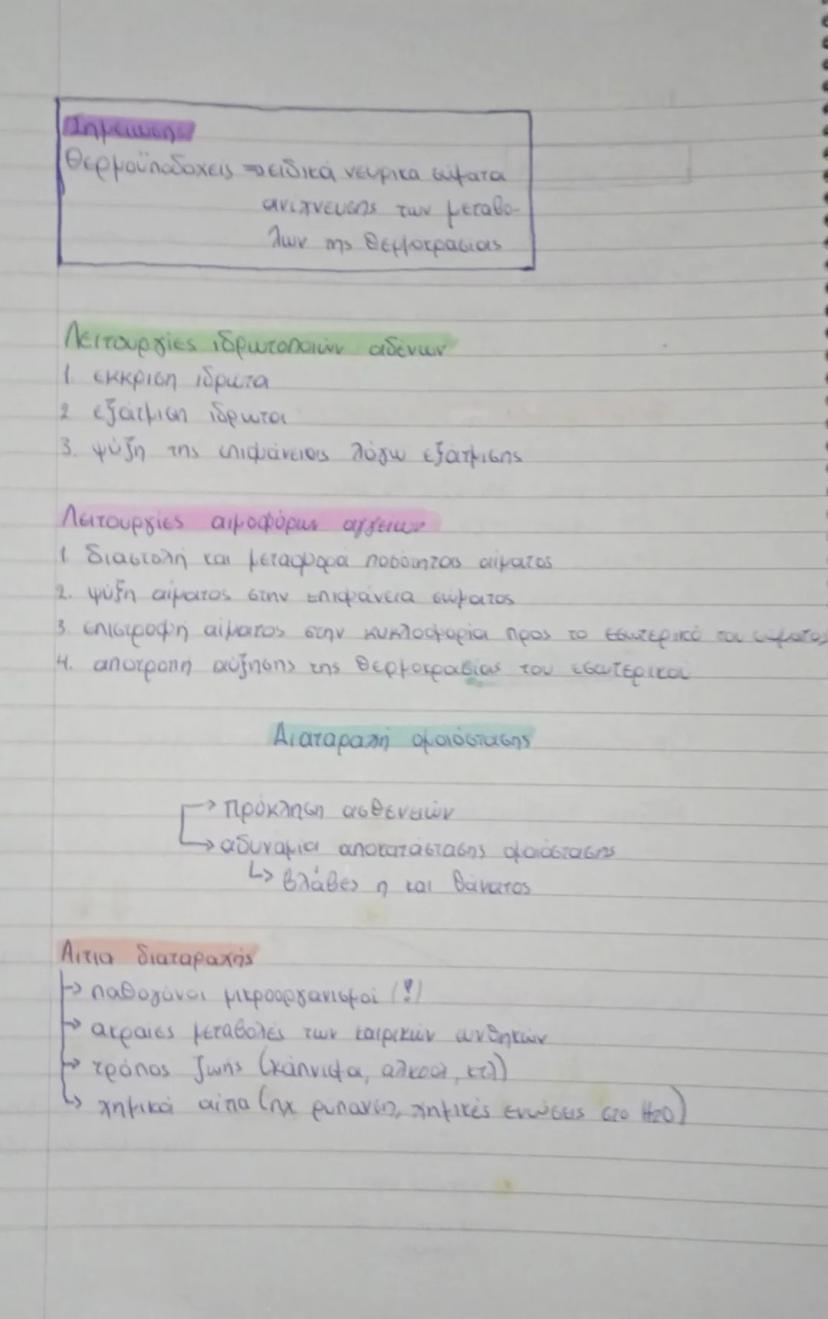 Σημείωση
Θερμοϋποδοχείς ⇒ ειδικά νευρικά σώματα
ανίχνευσης των μεταβο-
λών της θερμοκρασίας
Λειτουργίες ιδρωτοποιών αδένων
1. έκκριση ιδρώτα
2. εξάτμιση ιδρώτα
3. ψύξη της επιφάνειας λόγω εξάτμισης
Λειτουργίες αιμοφόρων αγγείων
1. διαστολή και μεταφορά ποσότητας αίματος
2. ψύξη αίματος στην επιφάνεια σώματος
3. επιστροφή αίματος στην κυκλοφορία προς το εσωτερικό του σώματος
4. αποτροπή αύξησης της θερμοκρασίας του εσωτερικού
Διαταραχή ομοιόστασης
→ πρόκληση ασθενειών
→ αδυναμία αποκατάστασης ομοιόστασης
↳ βλάβες η και θάνατος
Αίτια διαταραχής
→ παθογόνοι μικροοργανισμοί (!)
→ ακραίες μεταβολές των καιρικών συνθηκών
→ τρόπος ζωής (κάπνισμα, αλκοόλ, κτλ)
↳ χημικά αίτια (πχ ρύπανση, χημικές ενώσεις στο H2O)